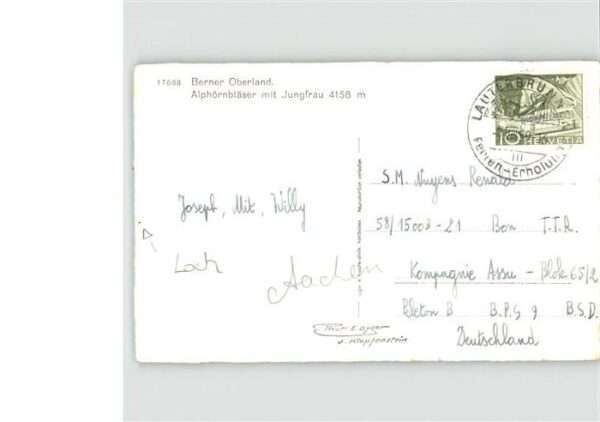 17668 Berner Oberland.
Alphörnbläser mit Jungfrau 4158 m
LAUTERBRUNNEN
Ferien-Erholung
10 HELVETIA
Joseph, Mit, Willy
Loch
Aachen
S.M. Nuyens Renald
58/15003-21 Bon T.T.R.
Kompagnie Assu - Blok 65/2
Peleton B B.P.S 9 B.S.D.
Deutschland
J. Klopfenstein